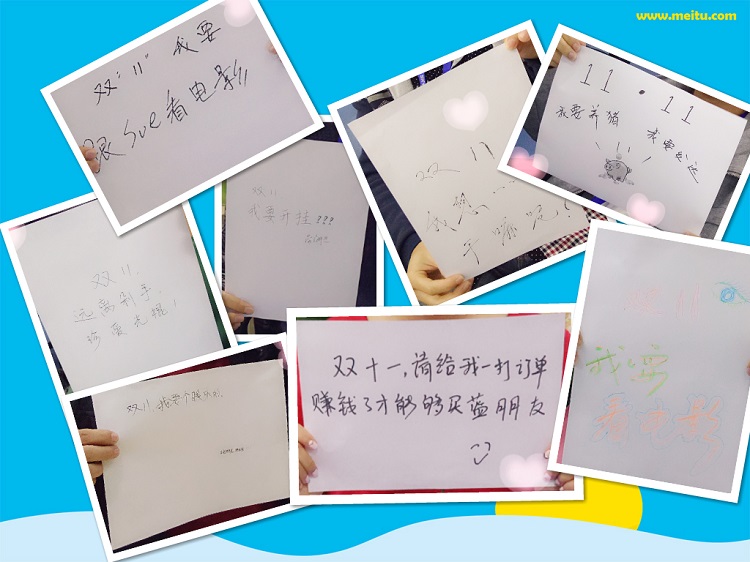 www.meitu.com
双"11"我要
跟Sue看电影!!
双 11
我想……
干嘛呢?!
11·11
我要养猪
双11
我要开挂???
双 11,
远离剁手,
珍爱光棍!
双11,我要个
双十一,请给我一打订单
赚钱了才能够买蓝朋友
我要
看电影